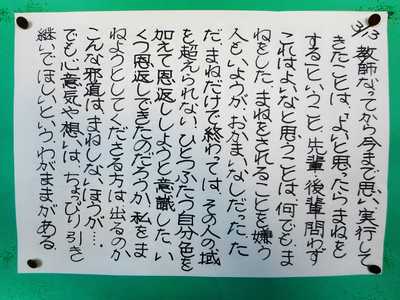 3/13 教師なってから今まで思い、実行して
きたことは、「よいと思ったらまねを
する」ということ。先輩後輩問わず
これはよいなと思うことは何でもま
ねをした。まねをされることを嫌う
人もいようが、おかまいなしだった。た
だ、まねだけで終わっては、その人の域
を超えられない。ひとつふたつ自分色を
加えて恩返ししようと意識した。い
くつ恩返しできたのだろうか。私をま
ねようとしてくださる方は出るのか。
こんな邪道はまねしないほうが…。
でも心意気や想いは、ちょっぴり引き
継いでほしいというわがままがある。